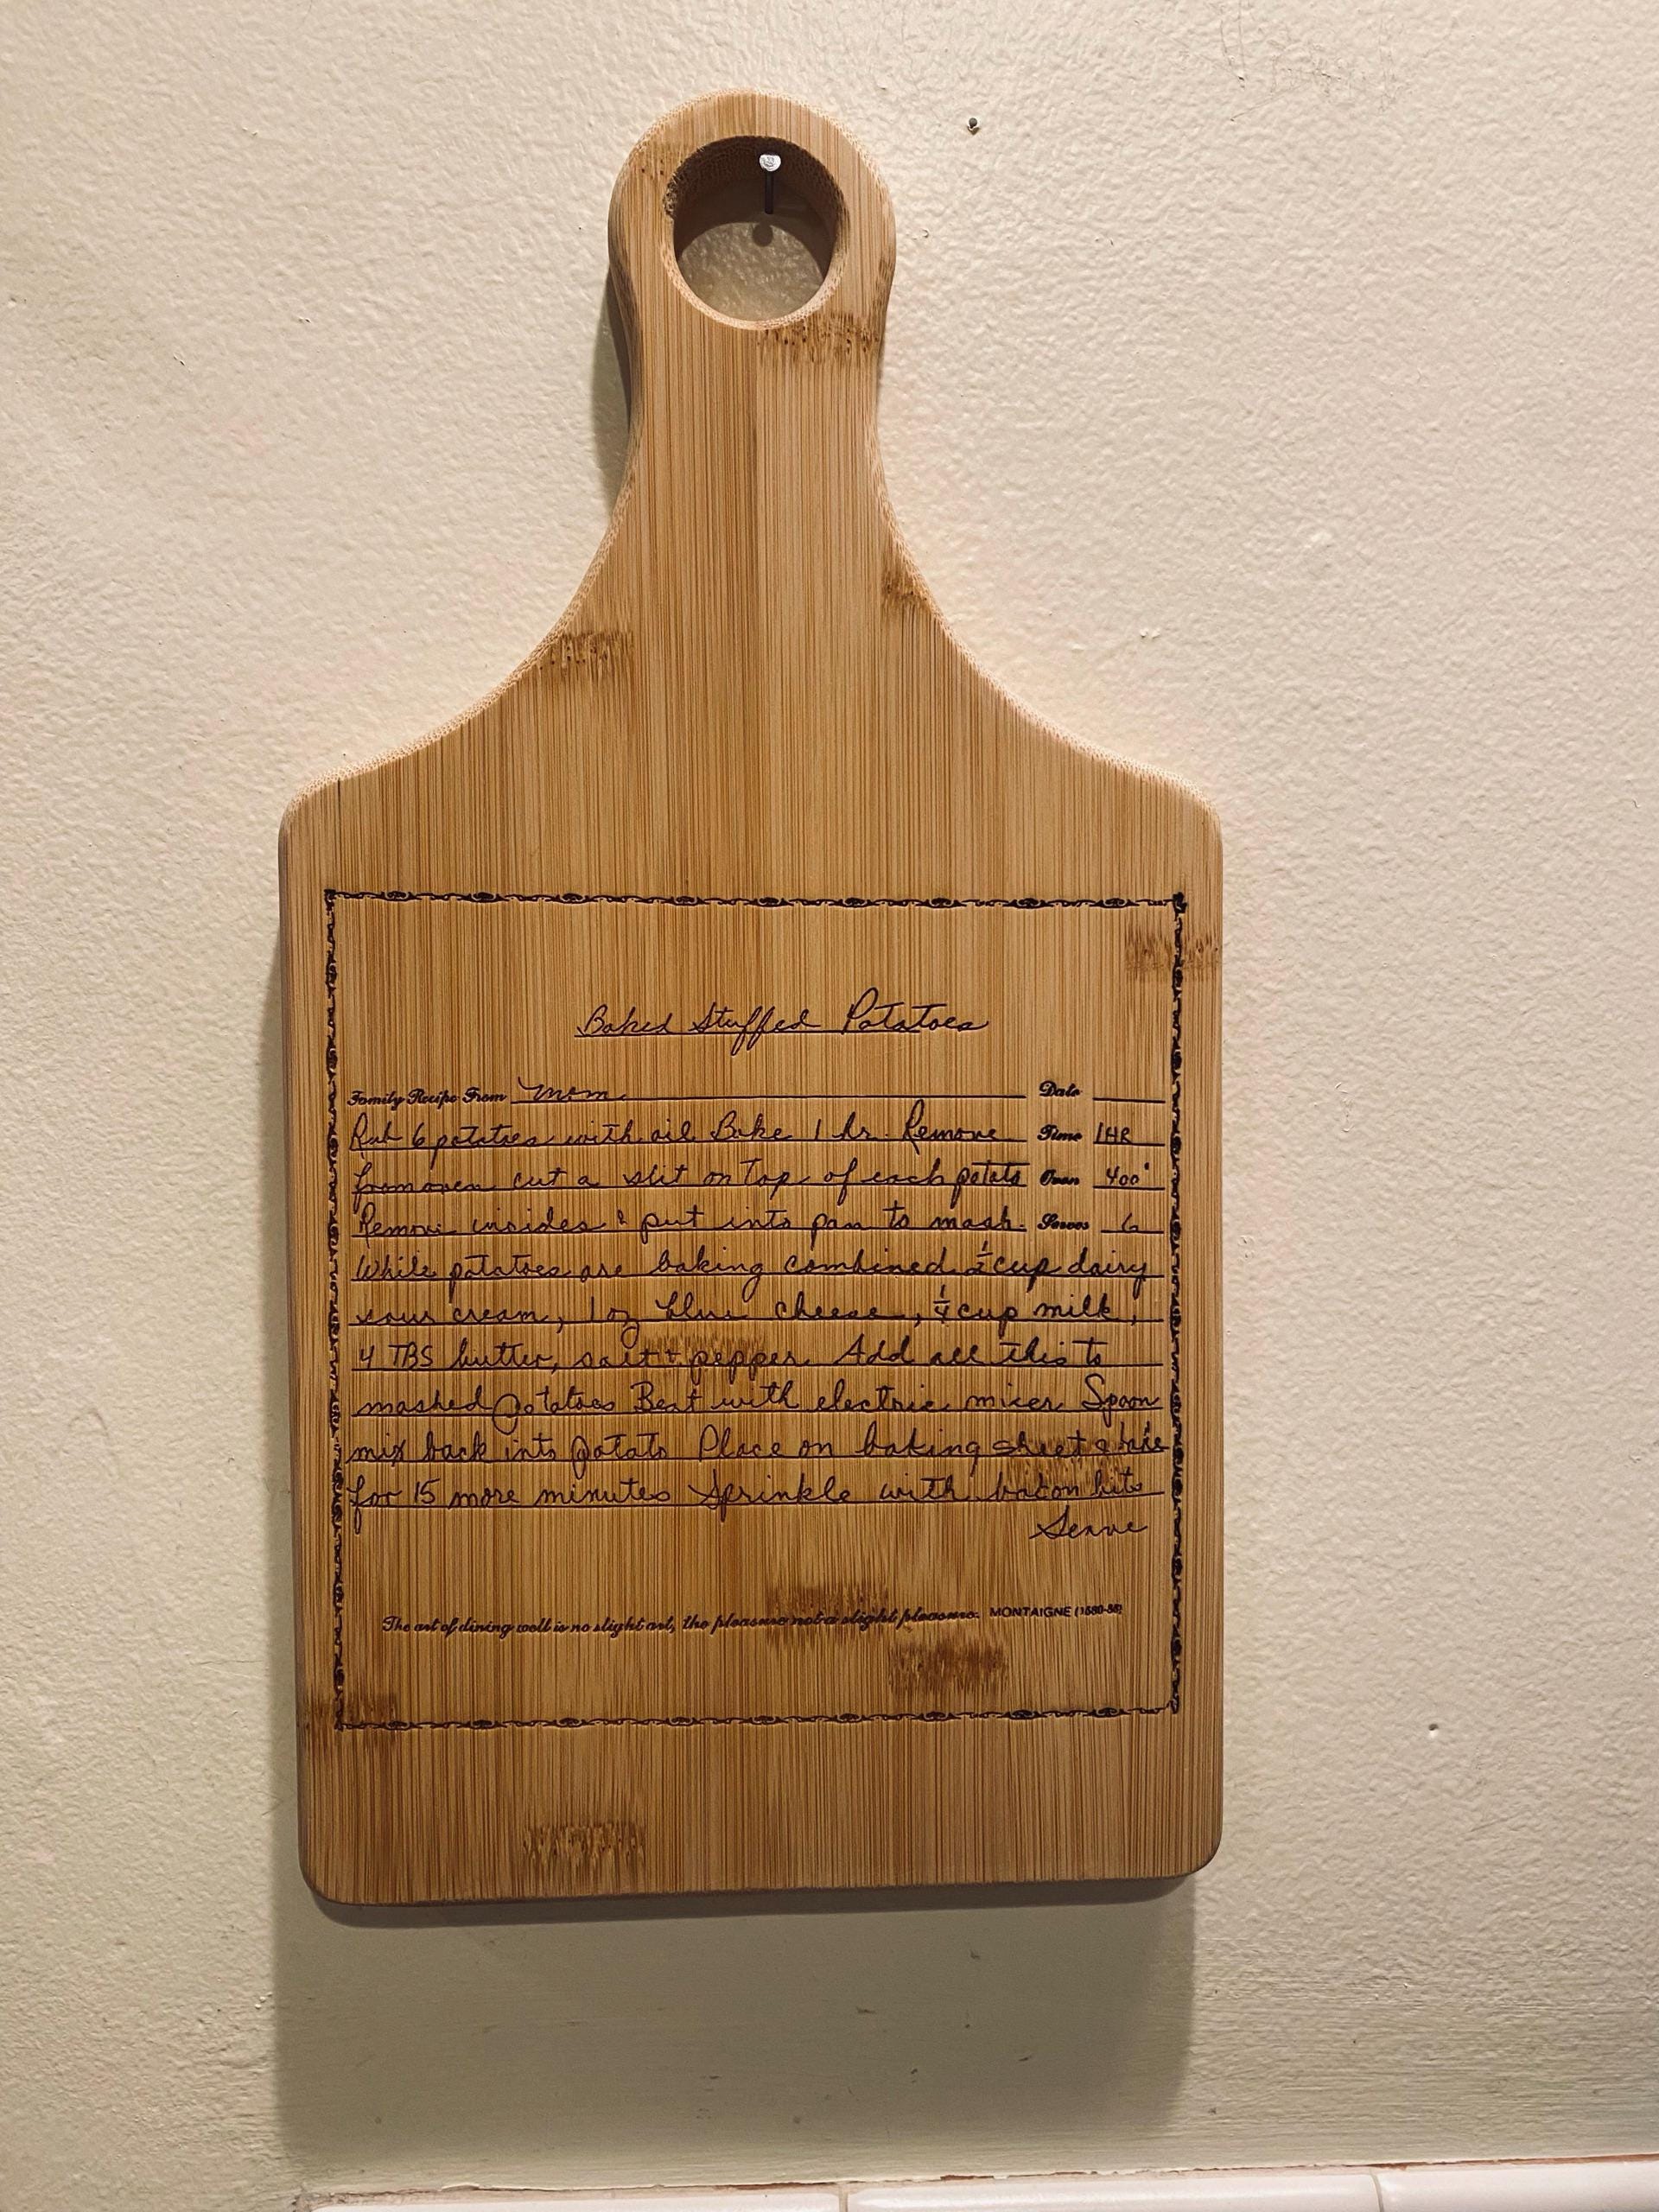 Baked Stuffed Potatoes
Family Recipe From Mom Date
Rub 6 potatoes with oil Bake 1 hr. Remove Time 1HR
from oven cut a slit on Top of each potato Oven 400°
Remove insides & put into pan to mash. Serves 6
While potatoes are baking combined ½ cup dairy
sour cream, 1 oz blue cheese, ¼ cup milk,
4 TBS butter, salt + pepper. Add all this to
mashed potatoes Beat with electric mixer Spoon
mix back into potato Place on baking sheet & bake
for 15 more minutes Sprinkle with bacon bits
Serve
The art of dining well is no slight art, the pleasure not a slight pleasure. MONTAIGNE (1580-88)